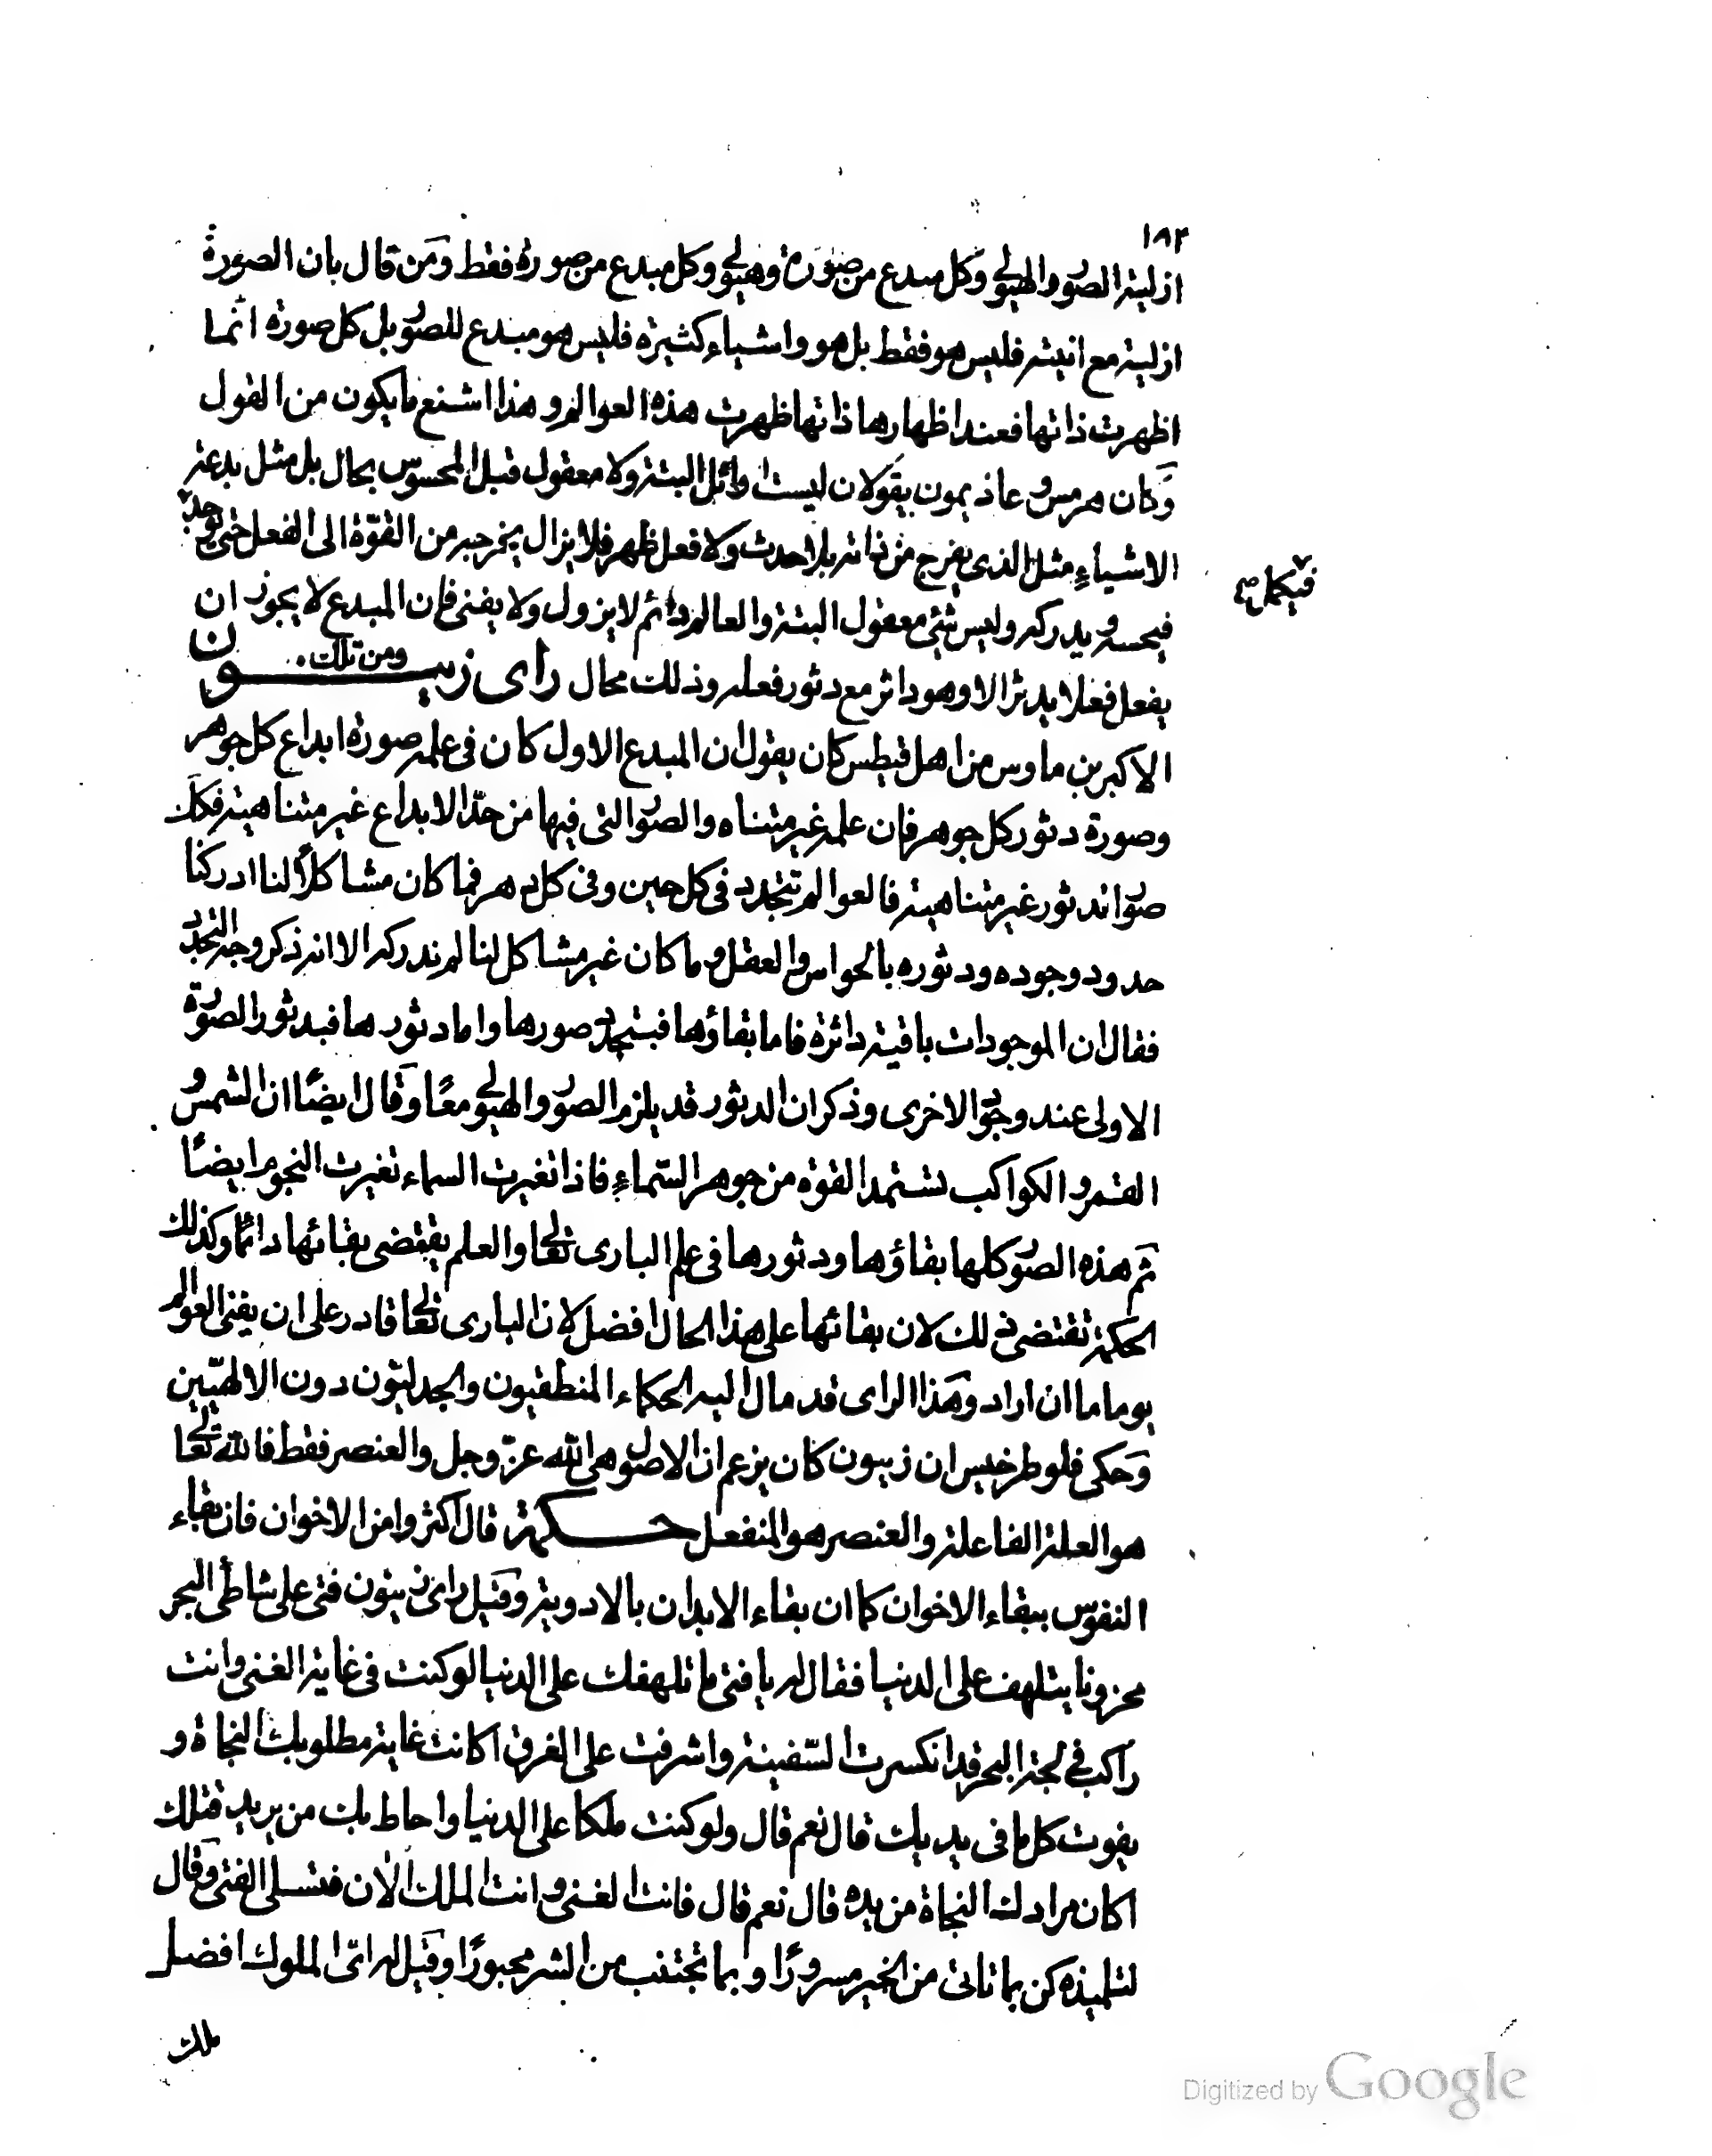 ١٨٢
ازلية الصور والهيولى وكل مبدع من صورة وهيولى وكل مبدع من صورة فقط ومن قال بان الصورة
ازلية مع انيته فليس هو فقط بل هو واشياء كثيرة فليس هو مبدع للصور بل كل صورة انما
اظهرت ذاتها فعند اظهارها ذاتها ظهرت هذه العوالم وهذا اشنع ما يكون من القول
وكان هرمس وعاذيمون يقولان ليست اوائل البتة ولا معقول قبل المحسوس بحال بل مثل بدعة
الاشياء مثل الذى يفرج من ذاته بلا حدث ولا فعل ظهر فلا يزال يخرجه من القوة الى الفعل حتى يوجد
فيكمل
فيحسه ويدركه وليس شئ معقول البتة والعالم دائم لا يزول ولا يفنى فان المبدع لا يجوز ان
يفعل فعلا يدثر الا وهو داثر مع دثور فعله وذلك محال راى زينون ومن تلك
الاكبر بن ماوس من اهل قيطس كان يقول ان المبدع الاول كان فى علمه صورة ابداع كل جوهر
وصورة دثور كل جوهر فان علمه غير متناه والصور التى فيها من حد الابداع غير متناهية فكك
صور الدثور غير متناهية فالعوالم تتجدد فى كل حين وفى كل دهر فما كان مشاكلا لنا ادركنا
حدود وجوده ودثوره بالحواس والعقل وما كان غير مشاكل لنا لم ندركه الا انه ذكر وجه التجدد
فقال ان الموجودات باقية داثرة فاما بقاؤها فبتجدد صورها واما دثورها فبدثور الصورة
الاولى عند وجود الاخرى وذكر ان الدثور قد يلزم الصور والهيولى معا وقال ايضا ان الشمس و
القمر والكواكب تستمد القوة من جوهر السماء فاذا تغيرت السماء تغيرت النجوم ايضا
ثم هذه الصور كلها بقاؤها ودثورها فى علم البارى تعالى والعلم يقتضى بقائها دائما وكذلك
الحكمة تقتضى ذلك لان بقائها على هذا الحال افضل لان البارى تعالى قادر على ان يفنى العوالم
يوما ما ان اراد وهذا الراى قد مال اليه الحكماء المنطقيون والجدليون دون الالهيين
وحكى فلوطرخيس ان زينون كان يزعم ان الاصول هى الله عز وجل والعنصر فقط فالله تعالى
هو العلة الفاعلة والعنصر هو المنفعل حكمة قال اكثروا من الاخوان فان بقاء
النفوس ببقاء الاخوان كما ان بقاء الابدان بالادوية وقيل راى زينون فتى على شاطئ البحر
محزونا يتلهف على الدنيا فقال له يا فتى ما تلهفك على الدنيا لو كنت فى غاية الغنى وانت
راكب فى لجة البحر قد انكسرت السفينة واشرفت على الغرق اكانت غاية مطلوبك النجاة و
يفوت كل ما فى يديك قال نعم قال ولو كنت ملكا على الدنيا واحاط بك من يريد قتلك
اكان مرادك النجاة من يده قال نعم قال فانت الغنى وانت الملك الان فتسلى الفتى وقال
لتلميذه كن بما تاتى من الخير مسرورا وبما تجتنب من الشر محبورا وقيل له اى الملوك افضل
ملك
Digitized by Google